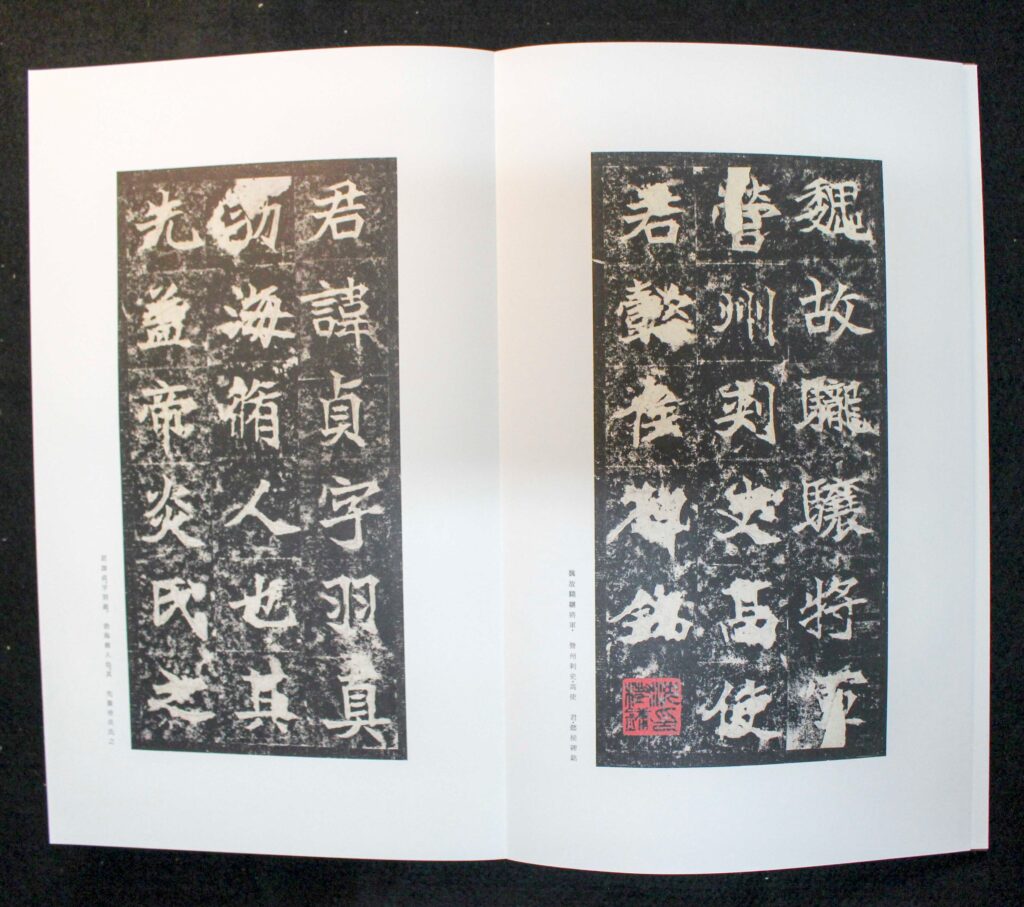 魏故龍驤將軍
營州刺史高使
君懿侯碑銘
魏故龍驤將軍、營州刺史高使 君懿侯碑銘
君諱貞字羽真
勃海脩人也其
先蓋帝炎氏之
君諱貞字羽真、勃海脩人也其 先蓋帝炎氏之